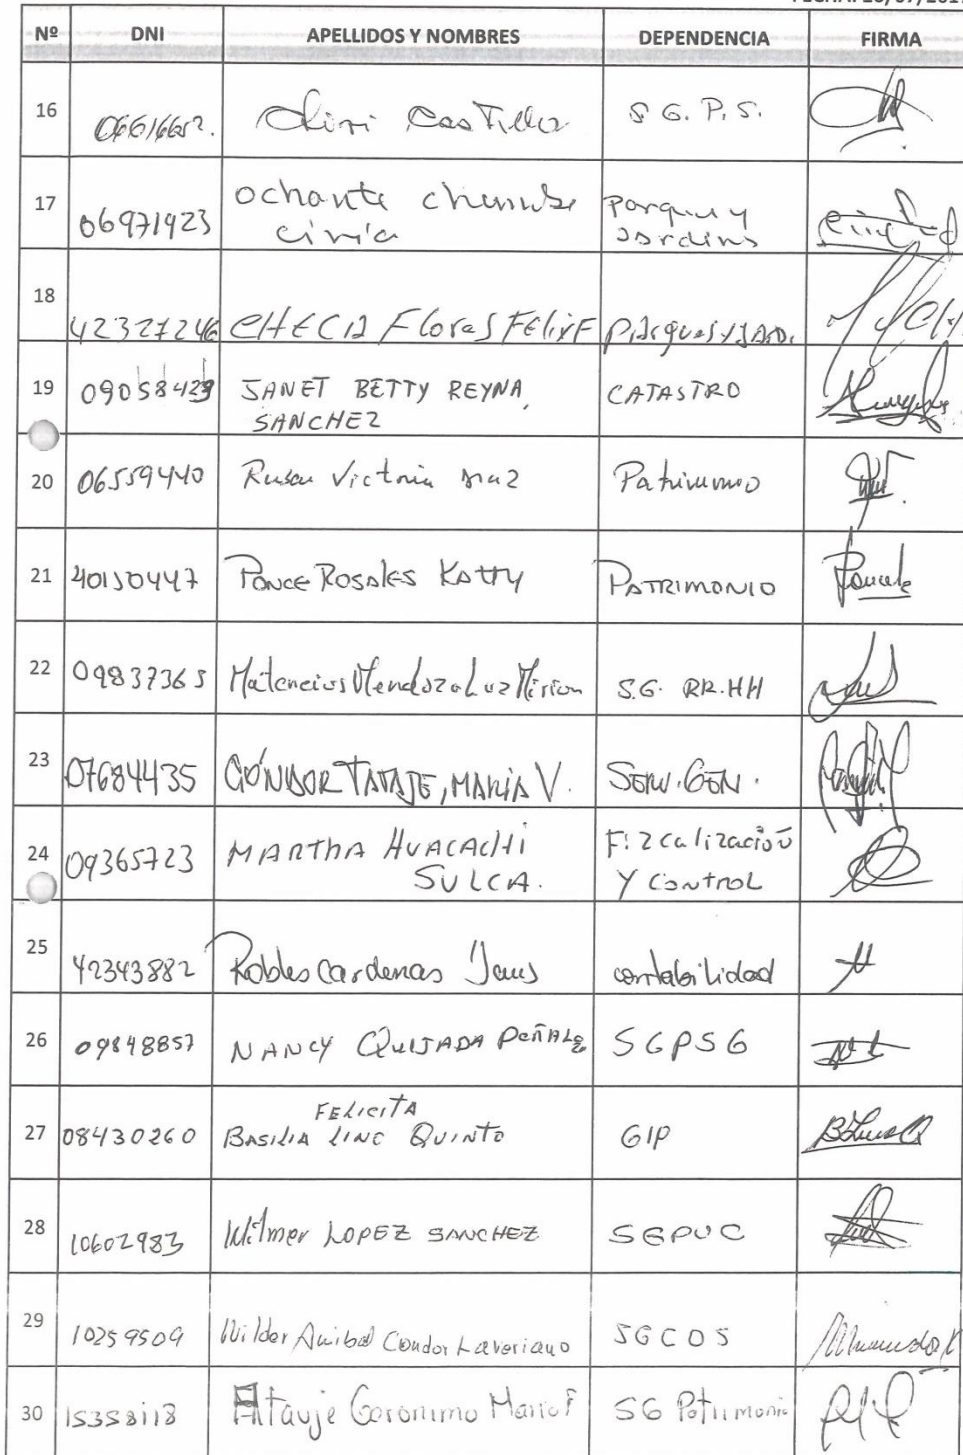 Nº DNI APELLIDOS Y NOMBRES DEPENDENCIA FIRMA
16 Castillo S G. P. S.
17 06971923 ochante Parques y
Jardins
18 42327246 CHECIA Flores FélixF PArques y JARD.
19 09058429 JANET BETTY REYNA CATASTRO
SANCHEZ
20 06559440 Victoria Patrimonio
21 40150447 PONCE ROSALES KATTY PATRIMONIO
22 09837365 Matencios Mendoza Luz Mirian S.G. RR.HH
23 07684435 CÓNDOR TATAJE, MARÍA V. SERV. GEN.
24 09365723 MARTHA HUACACHI Fizcalización
SULCA. Y CONTROL
25 42343882 Robles Cardenas contabilidad
26 09848857 NANCY QUIJADA SGPSG
27 08430260 FELICITA
BASILIA LINO QUINTO GIP
28 10602983 Wilmer LOPEZ SANCHEZ SGPUC
29 10259509 Wilder Anibal Condor Laveriano SGCOS
30 15358118 Atauje Geronimo Mario F SG Patrimonio